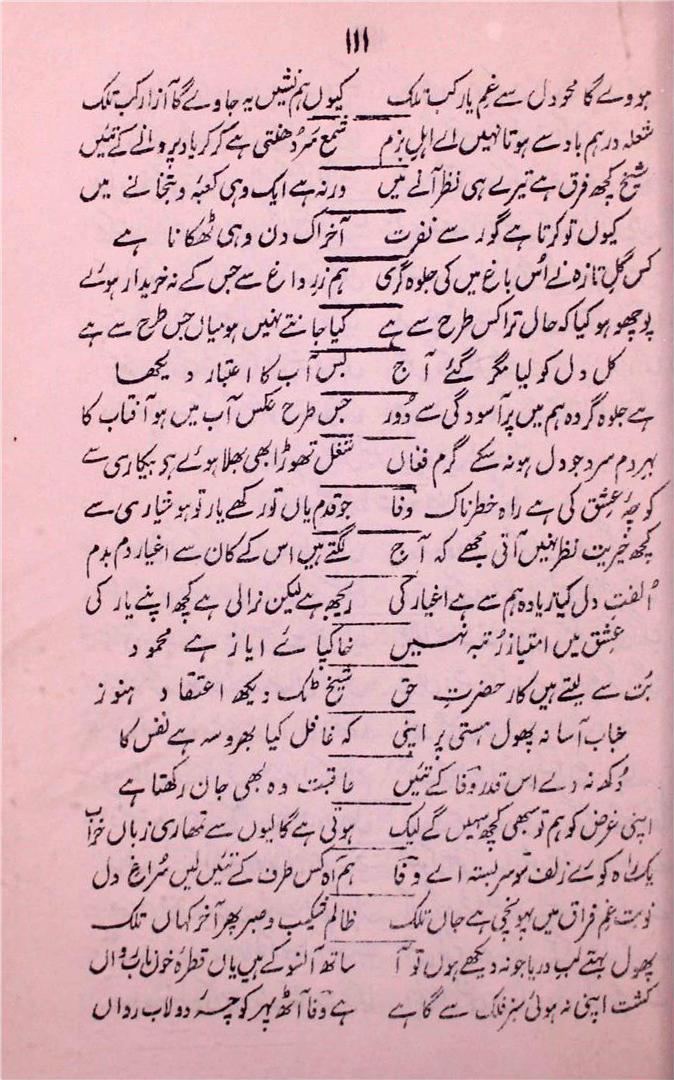 ۱۱۱
ہووے گا محو دل سے غم یار کب تلک کیوں ہم نشیں یہ جاوے گا آزار کب تلک
شعلہ درہم باد سے ہوتا نہیں اے اہل بزم شمع سر دھنتی ہے کر کر یاد پروانے کے تئیں
شیخ کچھ فرق ہے تیرے ہی نظر آنے میں ورنہ ہے ایک وہی کعبہ و بتخانے میں
کیوں تو کرتا ہے گور سے نفرت آخر اک دن وہی ٹھکانا ہے
کس گل تازہ نے اُس باغ میں کی جلوہ گری ہم زر داغ سے جس کے نہ خریدار ہوئے
پوچھو ہو کیا کہ حال ترا کس طرح سے ہے کیا جانتے نہیں ہو میاں جس طرح سے ہے
کل دل کو لیا مگر گئے آج بس آپ کا اعتبار دیکھا
ہے جلوہ گر وہ ہم میں پر آسودگی سے دُور جس طرح عکس آب میں ہو آفتاب کا
بہر دم سرد جو دل ہو نہ سکے گرم فغاں شغل تھوڑا بھی بھلا ہوئے ہے بیکاری سے
کوچۂ عشق کی ہے راہ خطرناک وفا جو قدم یاں تو رکھے یار تو ہوشیاری سے
کچھ خیریت نظر نہیں آتی مجھے کہ آج لگتے ہیں اس کے کان سے اغیار دم بدم
اُلفت دل گیا زیادہ ہم سے ہے اغیار کی ریجھ ہے لیکن نرالی ہے کچھ اپنے یار کی
عشق میں امتیاز رُتبہ نہیں خاکپائے ایاز ہے محمود
بُت سے لیتے ہیں کار حضرت حق شیخ ٹک دیکھ اعتقاد ہنوز
حباب آسا نہ پھول ہستی پر اپنی کہ غافل کیا بھروسہ ہے نفس کا
دُکھ نہ دے اس قدر وفا کے تئیں عاقبت وہ بھی جان رکھتا ہے
اپنی غرض کو ہم تو سبھی کچھ سہیں گے لیک ہوتی ہے گالیوں سے تمھاری زباں خراب
یک راہ کوئے زلف تو سربستہ اے وفا ہم آہ کس طرف کے تئیں لیں سُراغ دل
نوبت غم فراق میں پہونچی ہے جاں تلک ظالم شکیب و صبر پھر آخر کہاں تلک
پھول بہتے لب دریا جو نہ دیکھے ہوں تو آ ساتھ آنسو کے ہیں یاں قطرۂ خوں ناب رواں
کشت اپنی نہ ہوئی سبز فلک سے گاہے ہے وفا آٹھ پہر کو چہ دولاب رواں